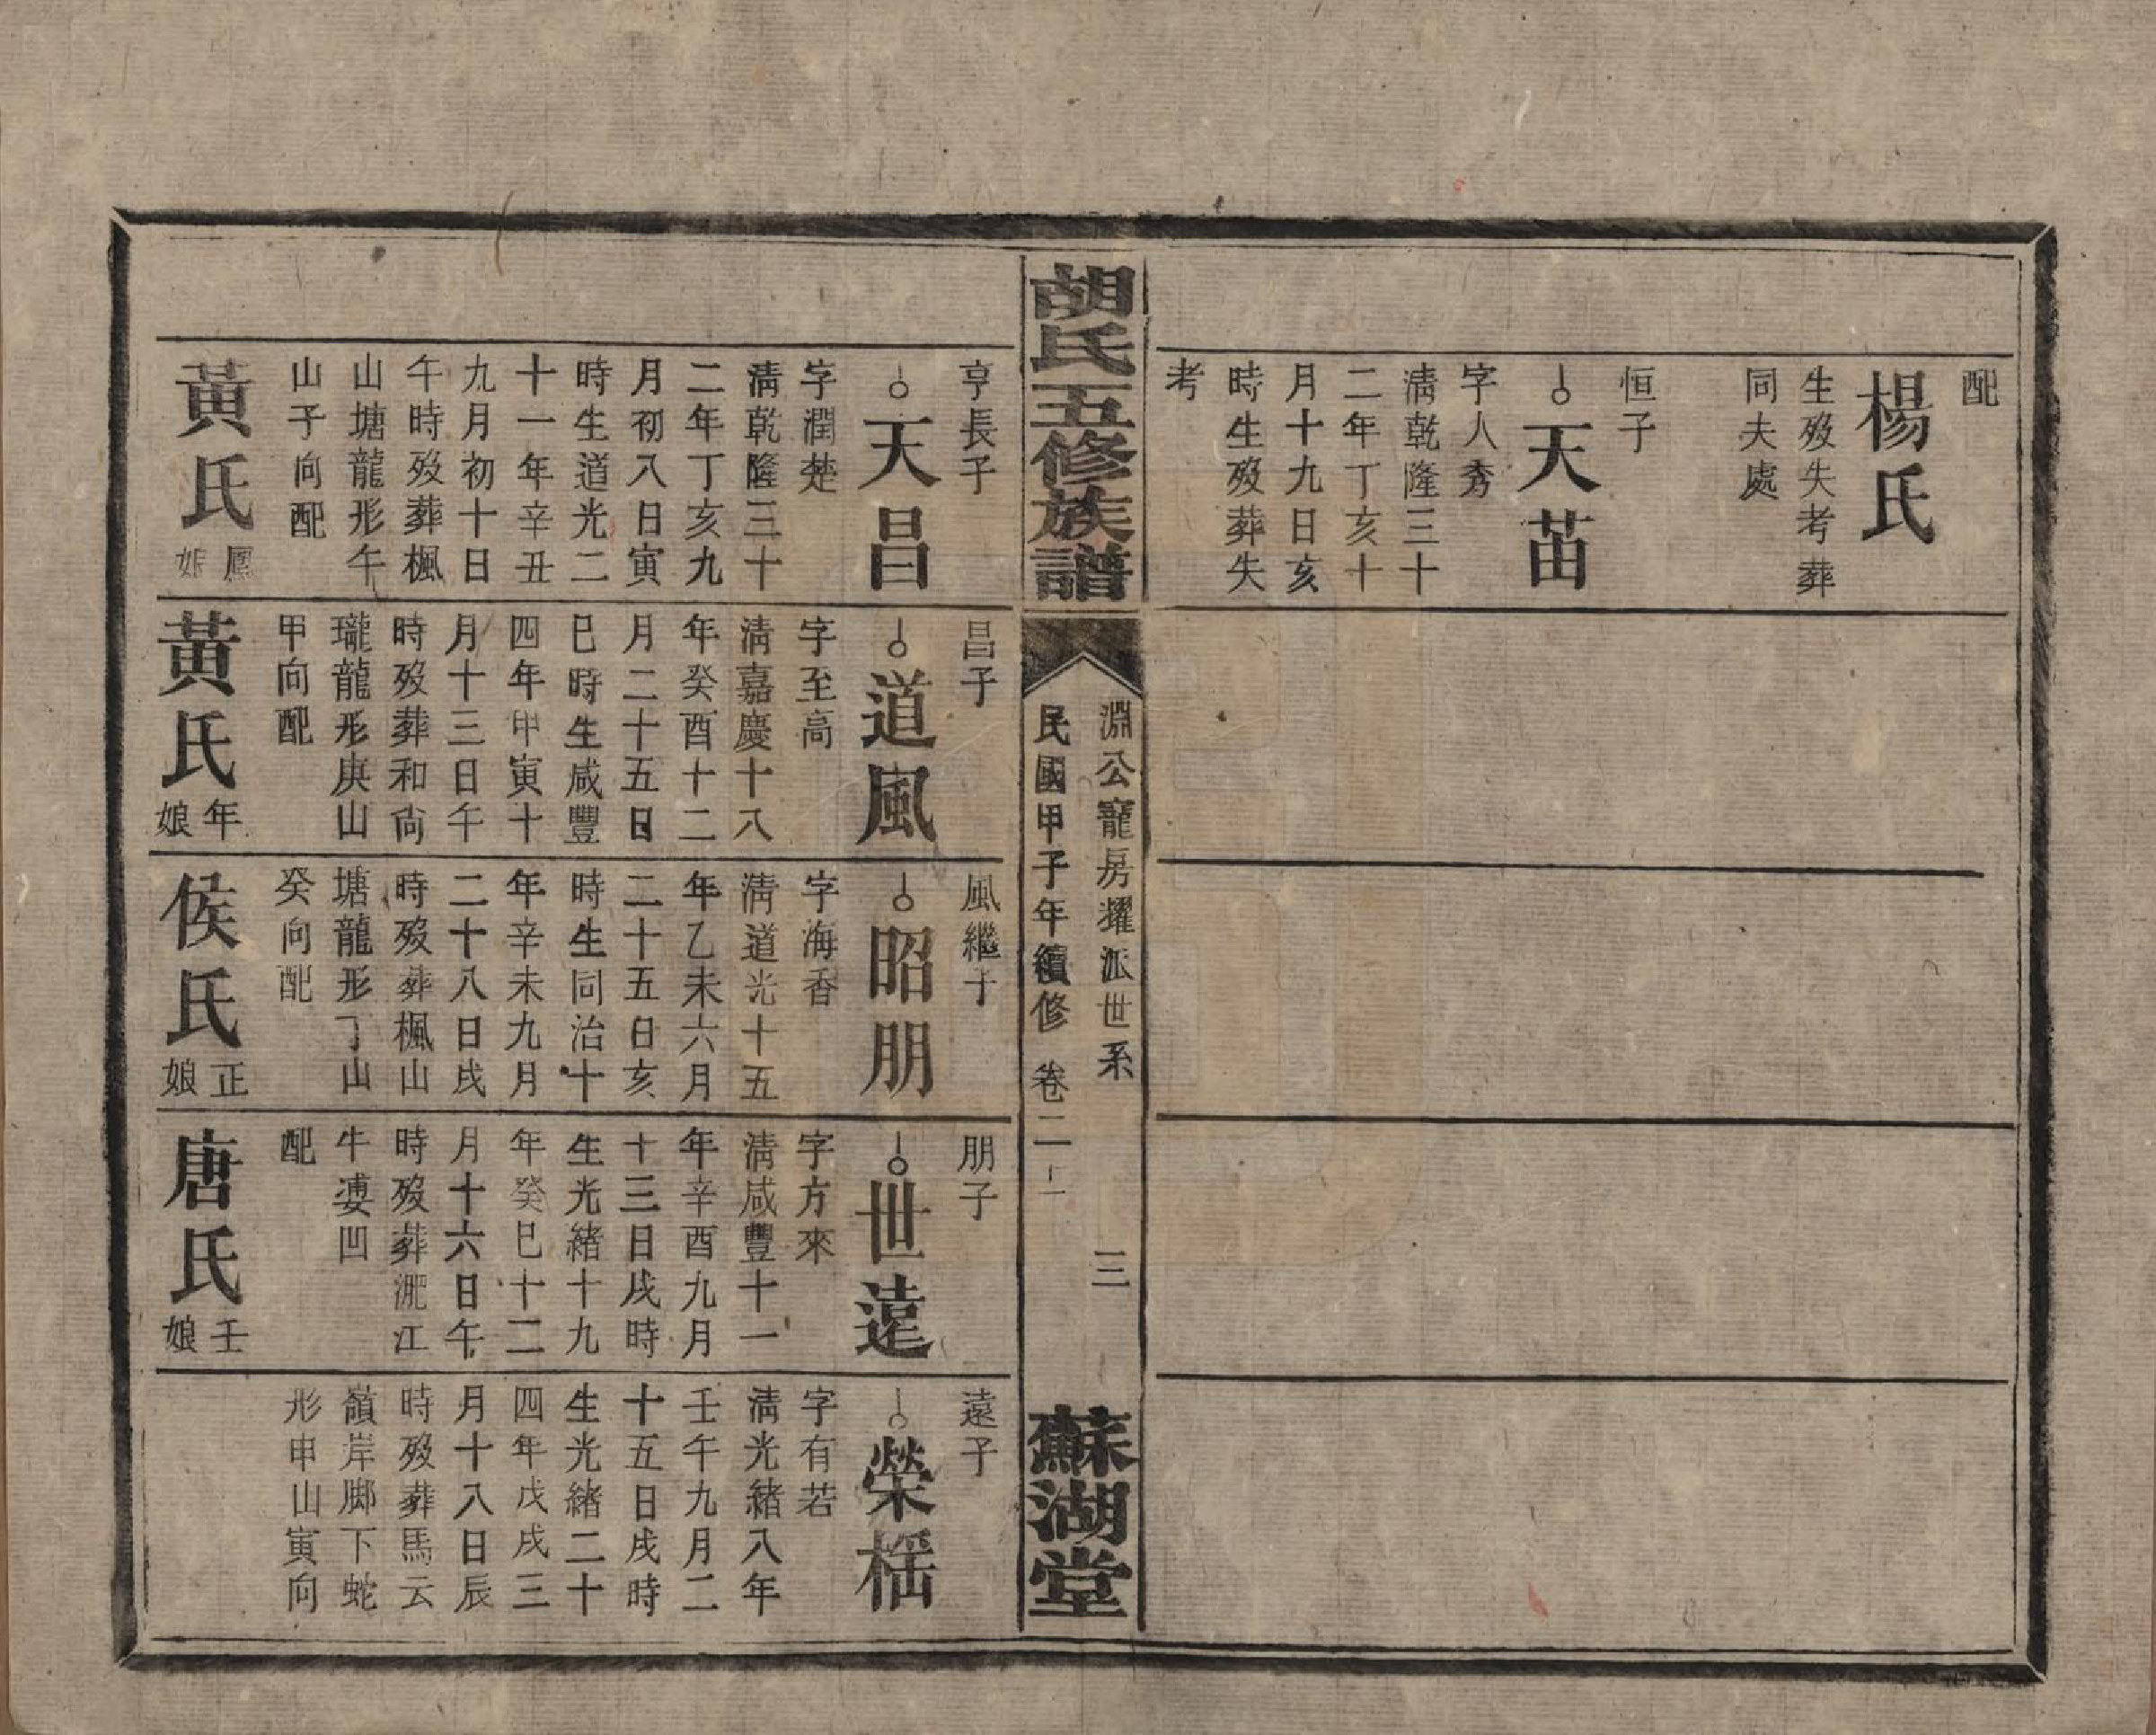 配
楊氏
生歿失考葬
同夫處
恒子
天苗
字人秀
清乾隆三十
二年丁亥十
月十九日亥
時生歿葬失
考
胡氏五修族譜
淵公寵房耀派世系
民國甲子年續修 卷二
三
蘇湖堂
亨長子
天昌
字潤楚
清乾隆三十
二年丁亥九
月初八日寅
時生道光二
十一年辛丑
九月初十日
午時歿葬楓
山塘龍形午
山子向配
黃氏
鳳
娘
昌子
道風
字至高
清嘉慶十八
年癸酉十二
月二十五日
巳時生咸豐
四年甲寅十
月十三日午
時歿葬和尙
瓏龍形庚山
甲向配
黃氏
年
娘
風繼子
昭朋
字海香
清道光十五
年乙未六月
二十五日亥
時生同治十
年辛未九月
二十八日戌
時歿葬楓山
塘龍形丁山
癸向配
侯氏
正
娘
朋子
世遠
字方來
清咸豐十一
年辛酉九月
十三日戌時
生光緒十九
年癸巳十二
月十六日午
時歿葬淝江
牛婆凹
配
唐氏
壬
娘
遠子
榮桰
字有若
清光緒八年
壬午九月二
十五日戌時
生光緒二十
四年戊戌三
月十八日辰
時歿葬馬云
嶺岸腳下蛇
形申山寅向